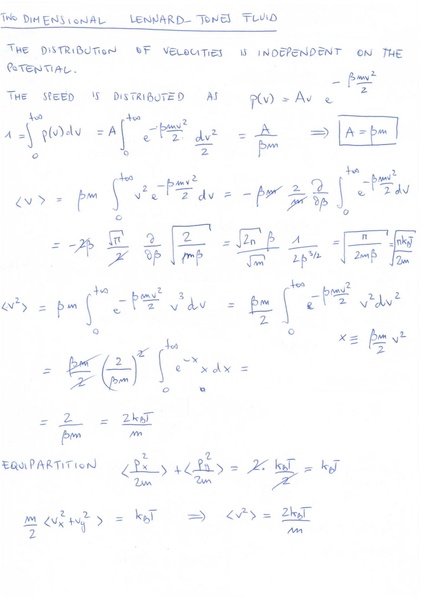 TWO DIMENSIONAL LENNARD-JONES FLUID
THE DISTRIBUTION OF VELOCITIES IS INDEPENDENT ON THE
POTENTIAL.
THE SPEED IS DISTRIBUTED AS p(v) = A v e^{-βmv²/2}
1 = ∫₀^{+∞} p(v)dv = A ∫₀^{+∞} e^{-βmv²/2} dv²/2 = A/βm ⟹ A = βm
⟨v⟩ = βm ∫₀^{+∞} v² e^{-βmv²/2} dv = -βm 2/m ∂/∂β ∫₀^{+∞} e^{-βmv²/2} dv
= -2β √π/2 ∂/∂β √(2/mβ) = √(2π) β/√m 1/(2β^{3/2}) = √(π/2mβ) = √(πk_BT/2m)
⟨v²⟩ = βm ∫₀^{+∞} e^{-βmv²/2} v³dv = βm/2 ∫₀^{+∞} e^{-βmv²/2} v²dv²
x ≡ βm/2 v²
= βm/2 (2/βm)² ∫₀^{+∞} e^{-x} x dx =
= 2/βm = 2k_BT/m
EQUIPARTITION ⟨p_x²/2m⟩ + ⟨p_y²/2m⟩ = 2· k_BT/2 = k_BT
m/2 ⟨v_x² + v_y²⟩ = k_BT ⟹ ⟨v²⟩ = 2k_BT/m